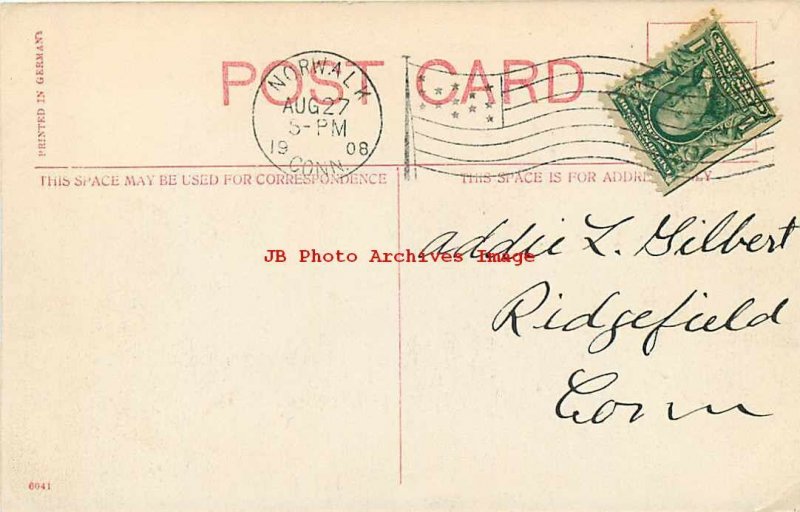 PRINTED IN GERMANY
POST CARD
NORWALK
AUG 27
5-PM
1908
CONN.
THIS SPACE MAY BE USED FOR CORRESPONDENCE
THIS SPACE IS FOR ADDRE LY
JB Photo Archives Image
Addie L. Gilbert
Ridgefield
Conn
6041